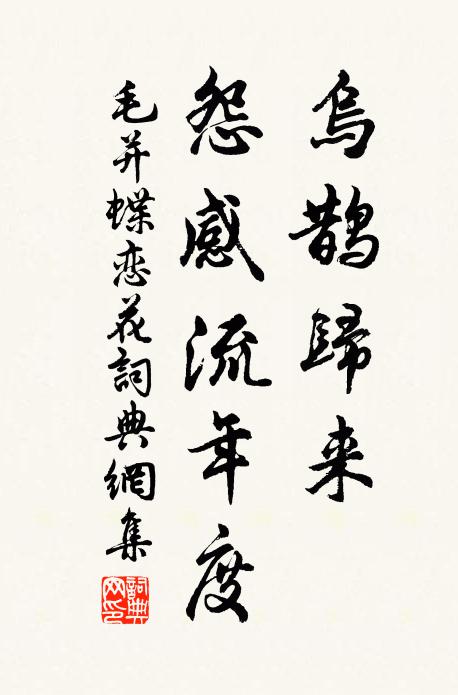 烏鵲歸来
怨感流年度
毛并蝶恋花詞典網集
詞典网印